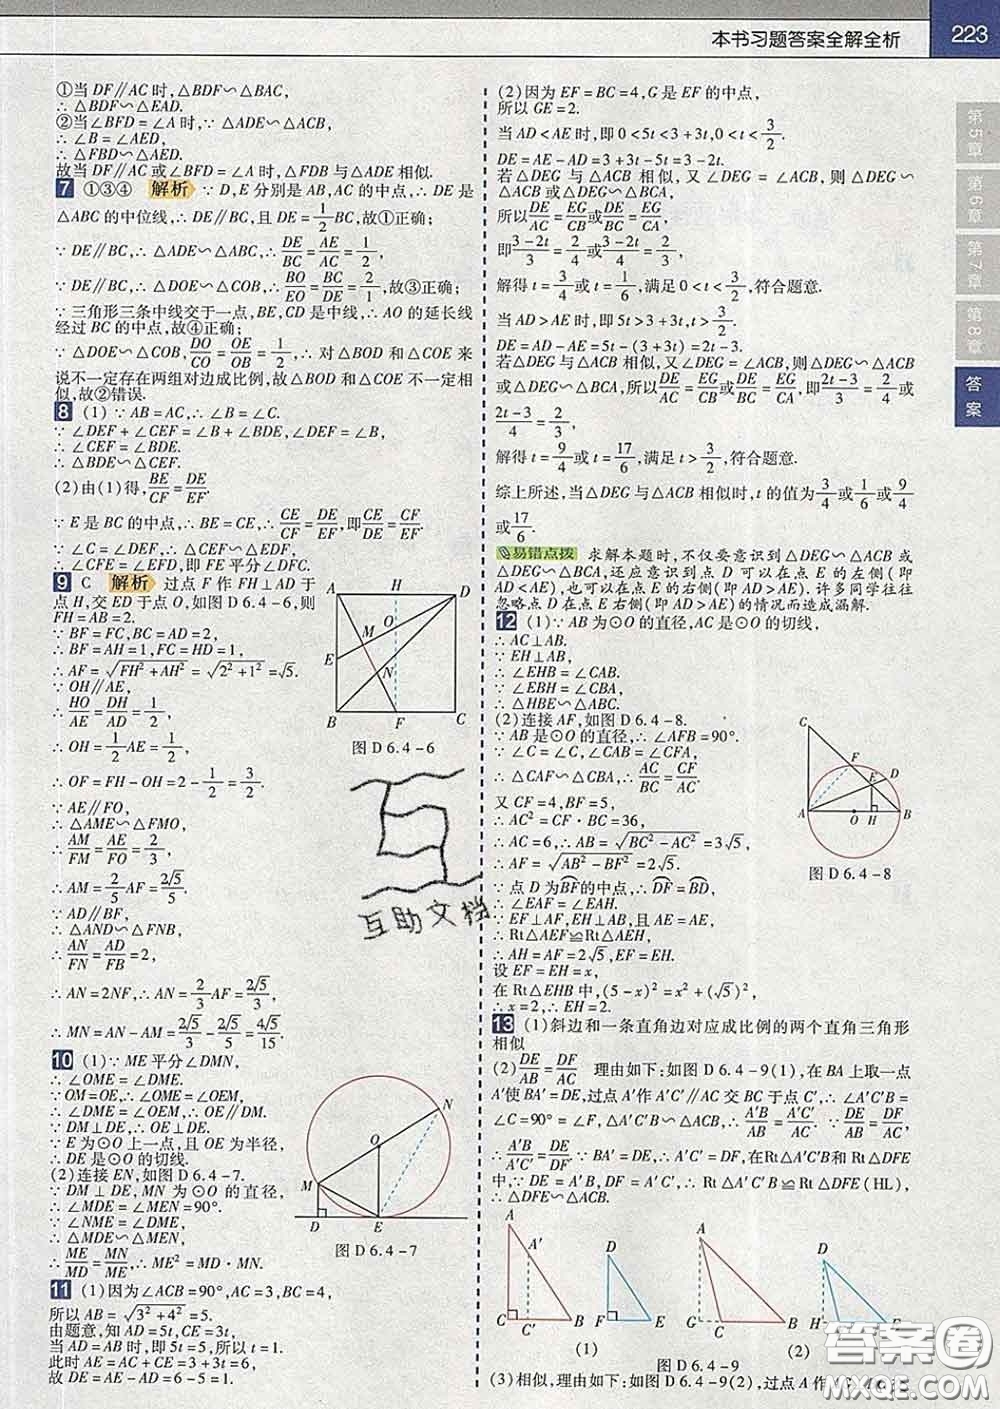 本书习题答案全解全析
223
第5章
第6章
第7章
第8章
答案
①当 DF∥AC 时,△BDF∽△BAC,
∴△BDF∽△EAD.
②当∠BFD=∠A 时,∵△ADE∽△ACB,
∴∠B=∠AED.
∴△FBD∽△AED.
故当 DF∥AC 或∠BFD=∠A 时,△FDB 与△ADE 相似.
7 ①③④ 解析 ∵D,E 分别是 AB,AC 的中点,∴DE 是
△ABC 的中位线,∴DE∥BC,且 DE=1/2 BC,故①正确;
∵DE∥BC,∴△ADE∽△ABC,∴DE/BC=AE/AC=1/2,
∵DE∥BC,∴△DOE∽△COB,∴BO/EO=BC/DE=2/1,故③正确;
∵三角形三条中线交于一点,BE,CD 是中线,∴AO 的延长线
经过 BC 的中点,故④正确;
∵△DOE∽△COB,DO/CO=OE/OB=1/2,∴对△BOD 和△COE 来
说不一定存在两组对边成比例,故△BOD 和△COE 不一定相
似,故②错误.
8 (1)∵AB=AC,∴∠B=∠C.
∵∠DEF+∠CEF=∠B+∠BDE,∠DEF=∠B,
∴∠CEF=∠BDE.
∴△BDE∽△CEF.
(2)由(1)得,BE/CF=DE/EF.
∵E 是 BC 的中点,∴BE=CE,∴CE/CF=DE/EF,即CE/DE=CF/EF.
∵∠C=∠DEF,∴△CEF∽△EDF,
∴∠CFE=∠EFD,即 FE 平分∠DFC.
9 C 解析 过点 F 作 FH⊥AD 于
点 H,交 ED 于点 O,如图 D 6.4-6,则
FH=AB=2.
∵BF=FC,BC=AD=2,
∴BF=AH=1,FC=HD=1,
∴AF=√(FH²+AH²)=√(2²+1²)=√5.
∵OH∥AE,
∴HO/AE=DH/AD=1/2,
∴OH=1/2 AE=1/2,
∴OF=FH-OH=2-1/2=3/2.
∵AE∥FO,
∴△AME∽△FMO,
∴AM/FM=AE/FO=2/3,
∴AM=2/5 AF=2√5/5.
∵AD∥BF,
∴△AND∽△FNB,
∴AN/FN=AD/FB=2,
∴AN=2NF,∴AN=2/3 AF=2√5/3.
∴MN=AN-AM=2√5/3-2√5/5=4√5/15.
A H D
M O
E N
B F C
图 D 6.4-6
10 (1)∵ME 平分∠DMN,
∴∠OME=∠DME.
∵OM=OE,∴∠OME=∠OEM,
∴∠DME=∠OEM,∴OE∥DM.
∵DM⊥DE,∴OE⊥DE.
∵E 为⊙O 上一点,且 OE 为半径,
∴DE 是⊙O 的切线.
(2)连接 EN,如图 D 6.4-7.
∵DM⊥DE,MN 为⊙O 的直径,
∴∠MDE=∠MEN=90°.
∵∠NME=∠DME,
∴△MDE∽△MEN,
∴ME/MD=MN/ME,∴ME²=MD·MN.
N
O
M
D E
图 D 6.4-7
11 (1)因为∠ACB=90°,AC=3,BC=4,
所以 AB=√(3²+4²)=5.
由题意,知 AD=5t,CE=3t,
当 AD=AB 时,即 5t=5,所以 t=1.
此时 AE=AC+CE=3+3t=6,
故 DE=AE-AD=6-5=1.
(2)因为 EF=BC=4,G 是 EF 的中点,
所以 GE=2.
当 AD<AE 时,即 0<5t<3+3t,0<t<3/2.
DE=AE-AD=3+3t-5t=3-2t.
若△DEG 与△ACB 相似,又∠DEG=∠ACB,则△DEG∽
△ACB或△DEG∽△BCA,
所以DE/AC=EG/CB或DE/BC=EG/CA,
即(3-2t)/3=2/4或(3-2t)/4=2/3,
解得 t=3/4或 t=1/6,满足 0<t<3/2,符合题意.
当 AD>AE 时,即 5t>3+3t,t>3/2.
DE=AD-AE=5t-(3+3t)=2t-3.
若△DEG 与△ACB 相似,又∠DEG=∠ACB,则△DEG∽△ACB
或△DEG∽△BCA,所以DE/AC=EG/CB或DE/BC=EG/CA,即(2t-3)/3=2/4或
(2t-3)/4=2/3,
解得 t=9/4或 t=17/6,满足 t>3/2,符合题意.
综上所述,当△DEG 与△ACB 相似时,t 的值为3/4或1/6或9/4
或17/6.
易错点拨 求解本题时,不仅要意识到△DEG∽△ACB 或
△DEG∽△BCA,还应意识到点 D 可以在点 E 的左侧(即
AD<AE),也可以在点 E 的右侧(即 AD>AE).许多同学往往
忽略点 D 在点 E 右侧(即 AD>AE)的情况而造成漏解.
12 (1)∵AB 为⊙O 的直径,AC 是⊙O 的切线,
∴AC⊥AB.
∵EH⊥AB,
∴∠EHB=∠CAB.
∵∠EBH=∠CBA,
∴△HBE∽△ABC.
(2)连接 AF,如图 D 6.4-8.
∵AB 是⊙O 的直径,∴∠AFB=90°.
∵∠C=∠C,∠CAB=∠CFA,
∴△CAF∽△CBA,∴AC/BC=CF/AC.
又 CF=4,BF=5,
∴AC²=CF·BC=36,
∴AC=6,∴AB=√(BC²-AC²)=3√5,
∴AF=√(AB²-BF²)=2√5.
∵点 D 为BF的中点,∴DF=BD,
∴∠EAF=∠EAH.
∵EF⊥AF,EH⊥AB,且 AE=AE,
∴Rt△AEF≌Rt△AEH,
∴AH=AF=2√5,EF=EH.
设 EF=EH=x,
在 Rt△EHB 中,(5-x)²=x²+(√5)²,
∴x=2,∴EH=2.
C
F
E D
A O H B
图 D 6.4-8
13 (1)斜边和一条直角边对应成比例的两个直角三角形
相似
(2)DE/AB=DF/AC 理由如下:如图 D 6.4-9(1),在 BA 上取一点
A′使 BA′=DE,过点 A′作 A′C′∥AC 交 BC 于点 C′,∴∠A′C′B=
∠C=90°=∠F,△A′C′B∽△ACB,∴A′B/AB=A′C′/AC.∵DE/AB=DF/AC,
∴A′B/A′C′=DE/DF.∵BA′=DE,∴A′C′=DF,在Rt△A′C′B和Rt△DFE
中,∵DE=A′B,DF=A′C′,∴Rt△A′C′B≌Rt△DFE(HL),
∴△DFE∽△ACB.
A A′ D A D
C C′ B F E G C B H F E
(1) (2)
图 D 6.4-9
(3)相似,理由如下:如图 D 6.4-9(2),过点 A 作
互助文档
答案圈
MXQE.COM